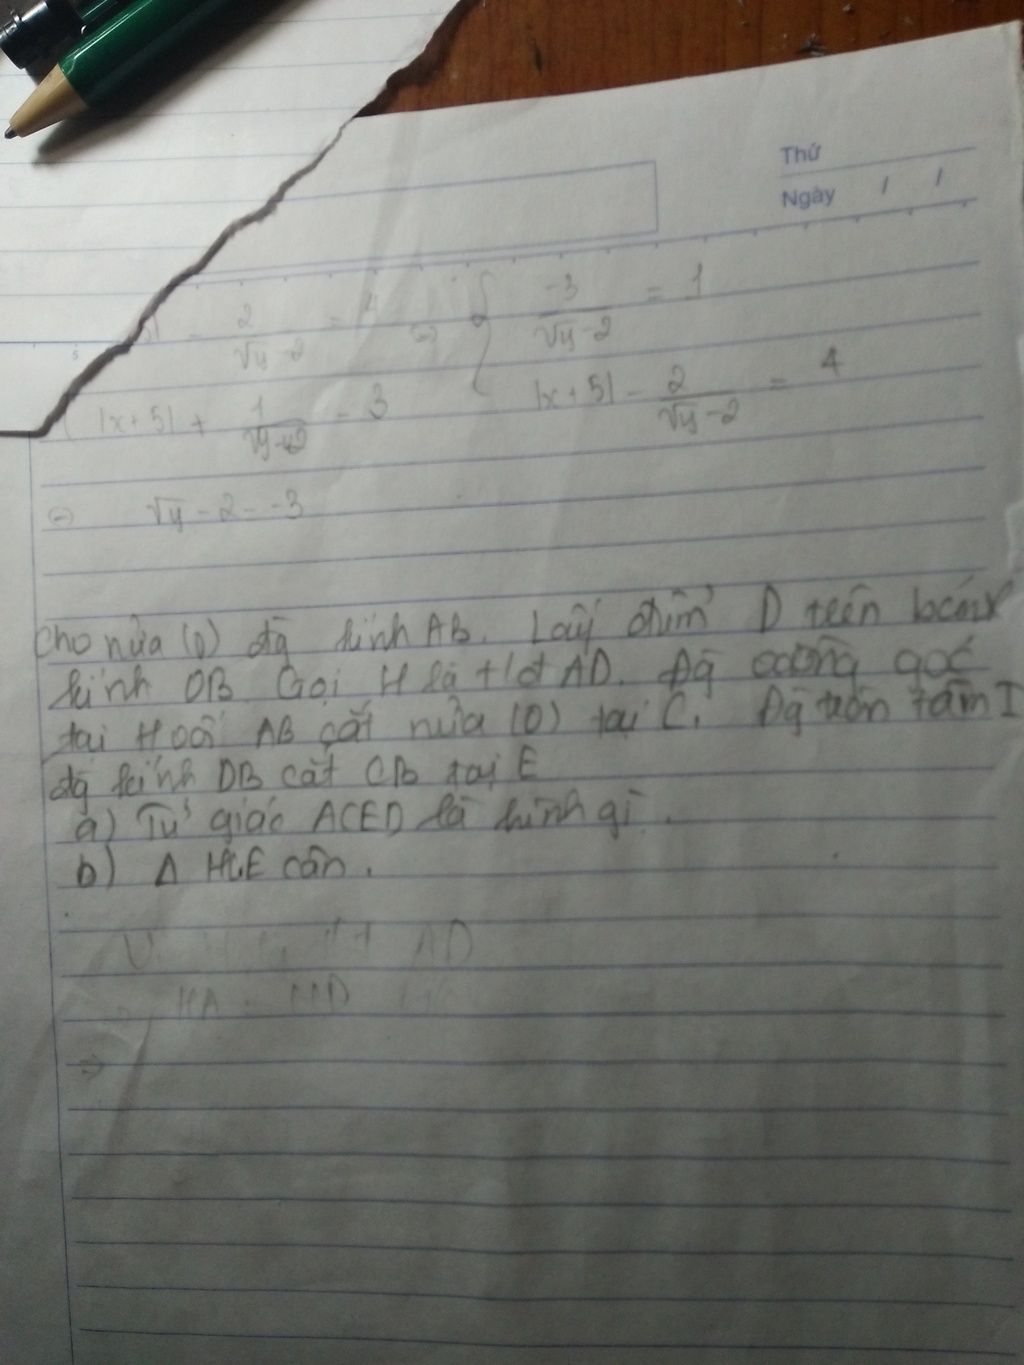 Thứ
Ngày / /
- 2/(√y - 2) = 4 ⇔ { -3/(√y - 2) = 1
|x + 5| + 1/(√y - 2) = 3 |x + 5| - 2/(√y - 2) = 4
⇔ √y - 2 = -3
Cho nửa (O) đg kính AB. Lấy điểm D trên bán
kính OB. Gọi H là t/đ AD. Đg vuông góc
tại H với AB cắt nửa (O) tại C. Đg tròn tâm I
đg kính DB cắt CB tại E
a) Tứ giác ACED là hình gì.
b) Δ HCE cân.
AD
HA = HD
⇒